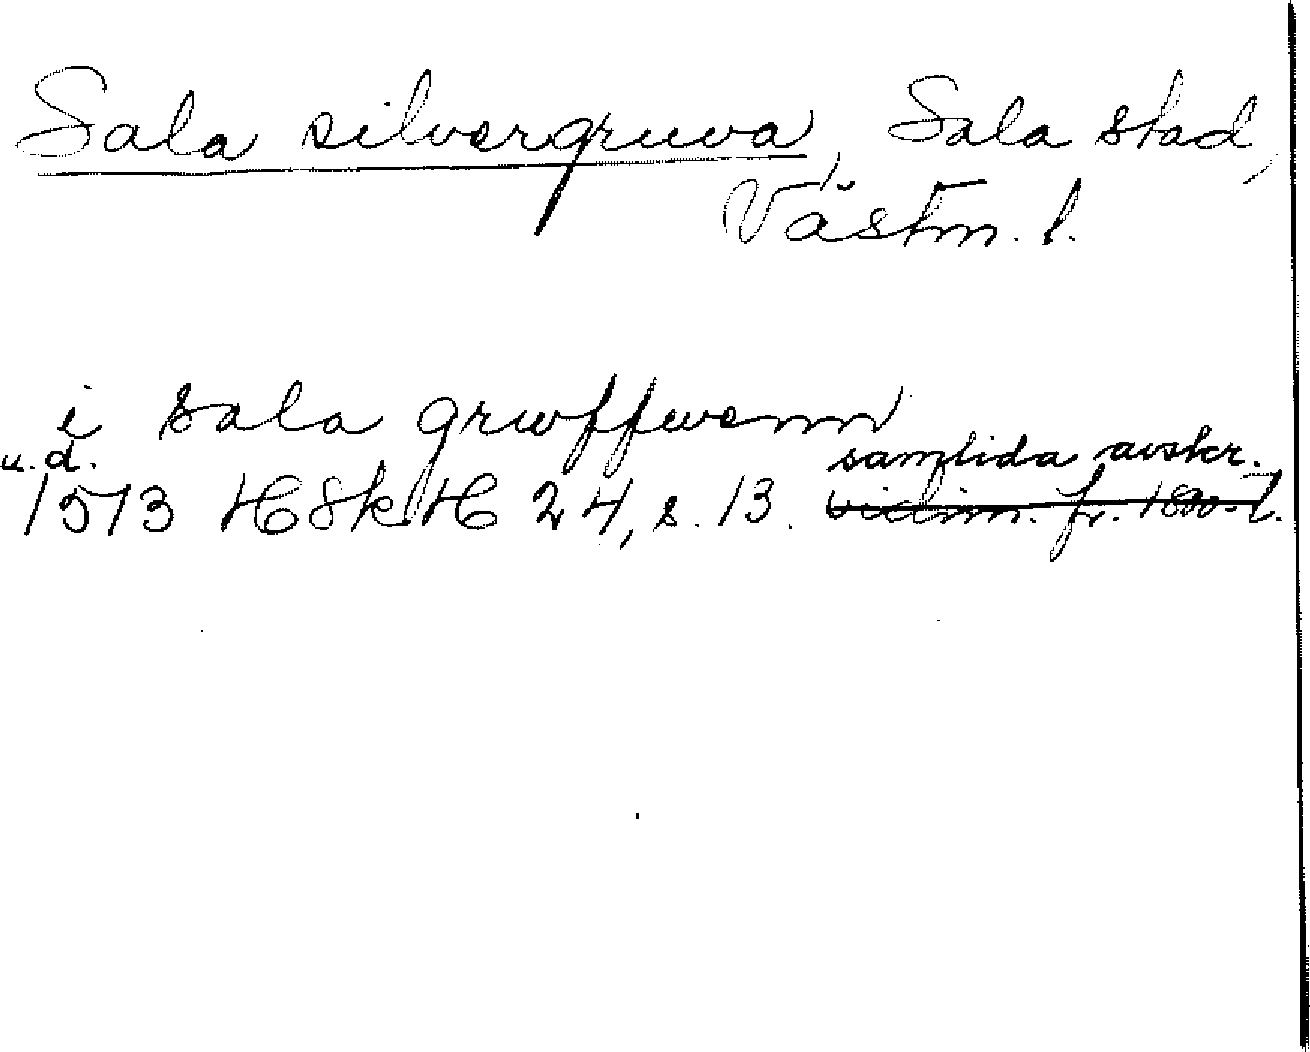 Sala silvergruva, Sala stad,
Västm. l.
i Sala grwffwenn
u.d. samtida avskr.
1573 HSkH 24, s. 13. vidim. fr. 1800-t.